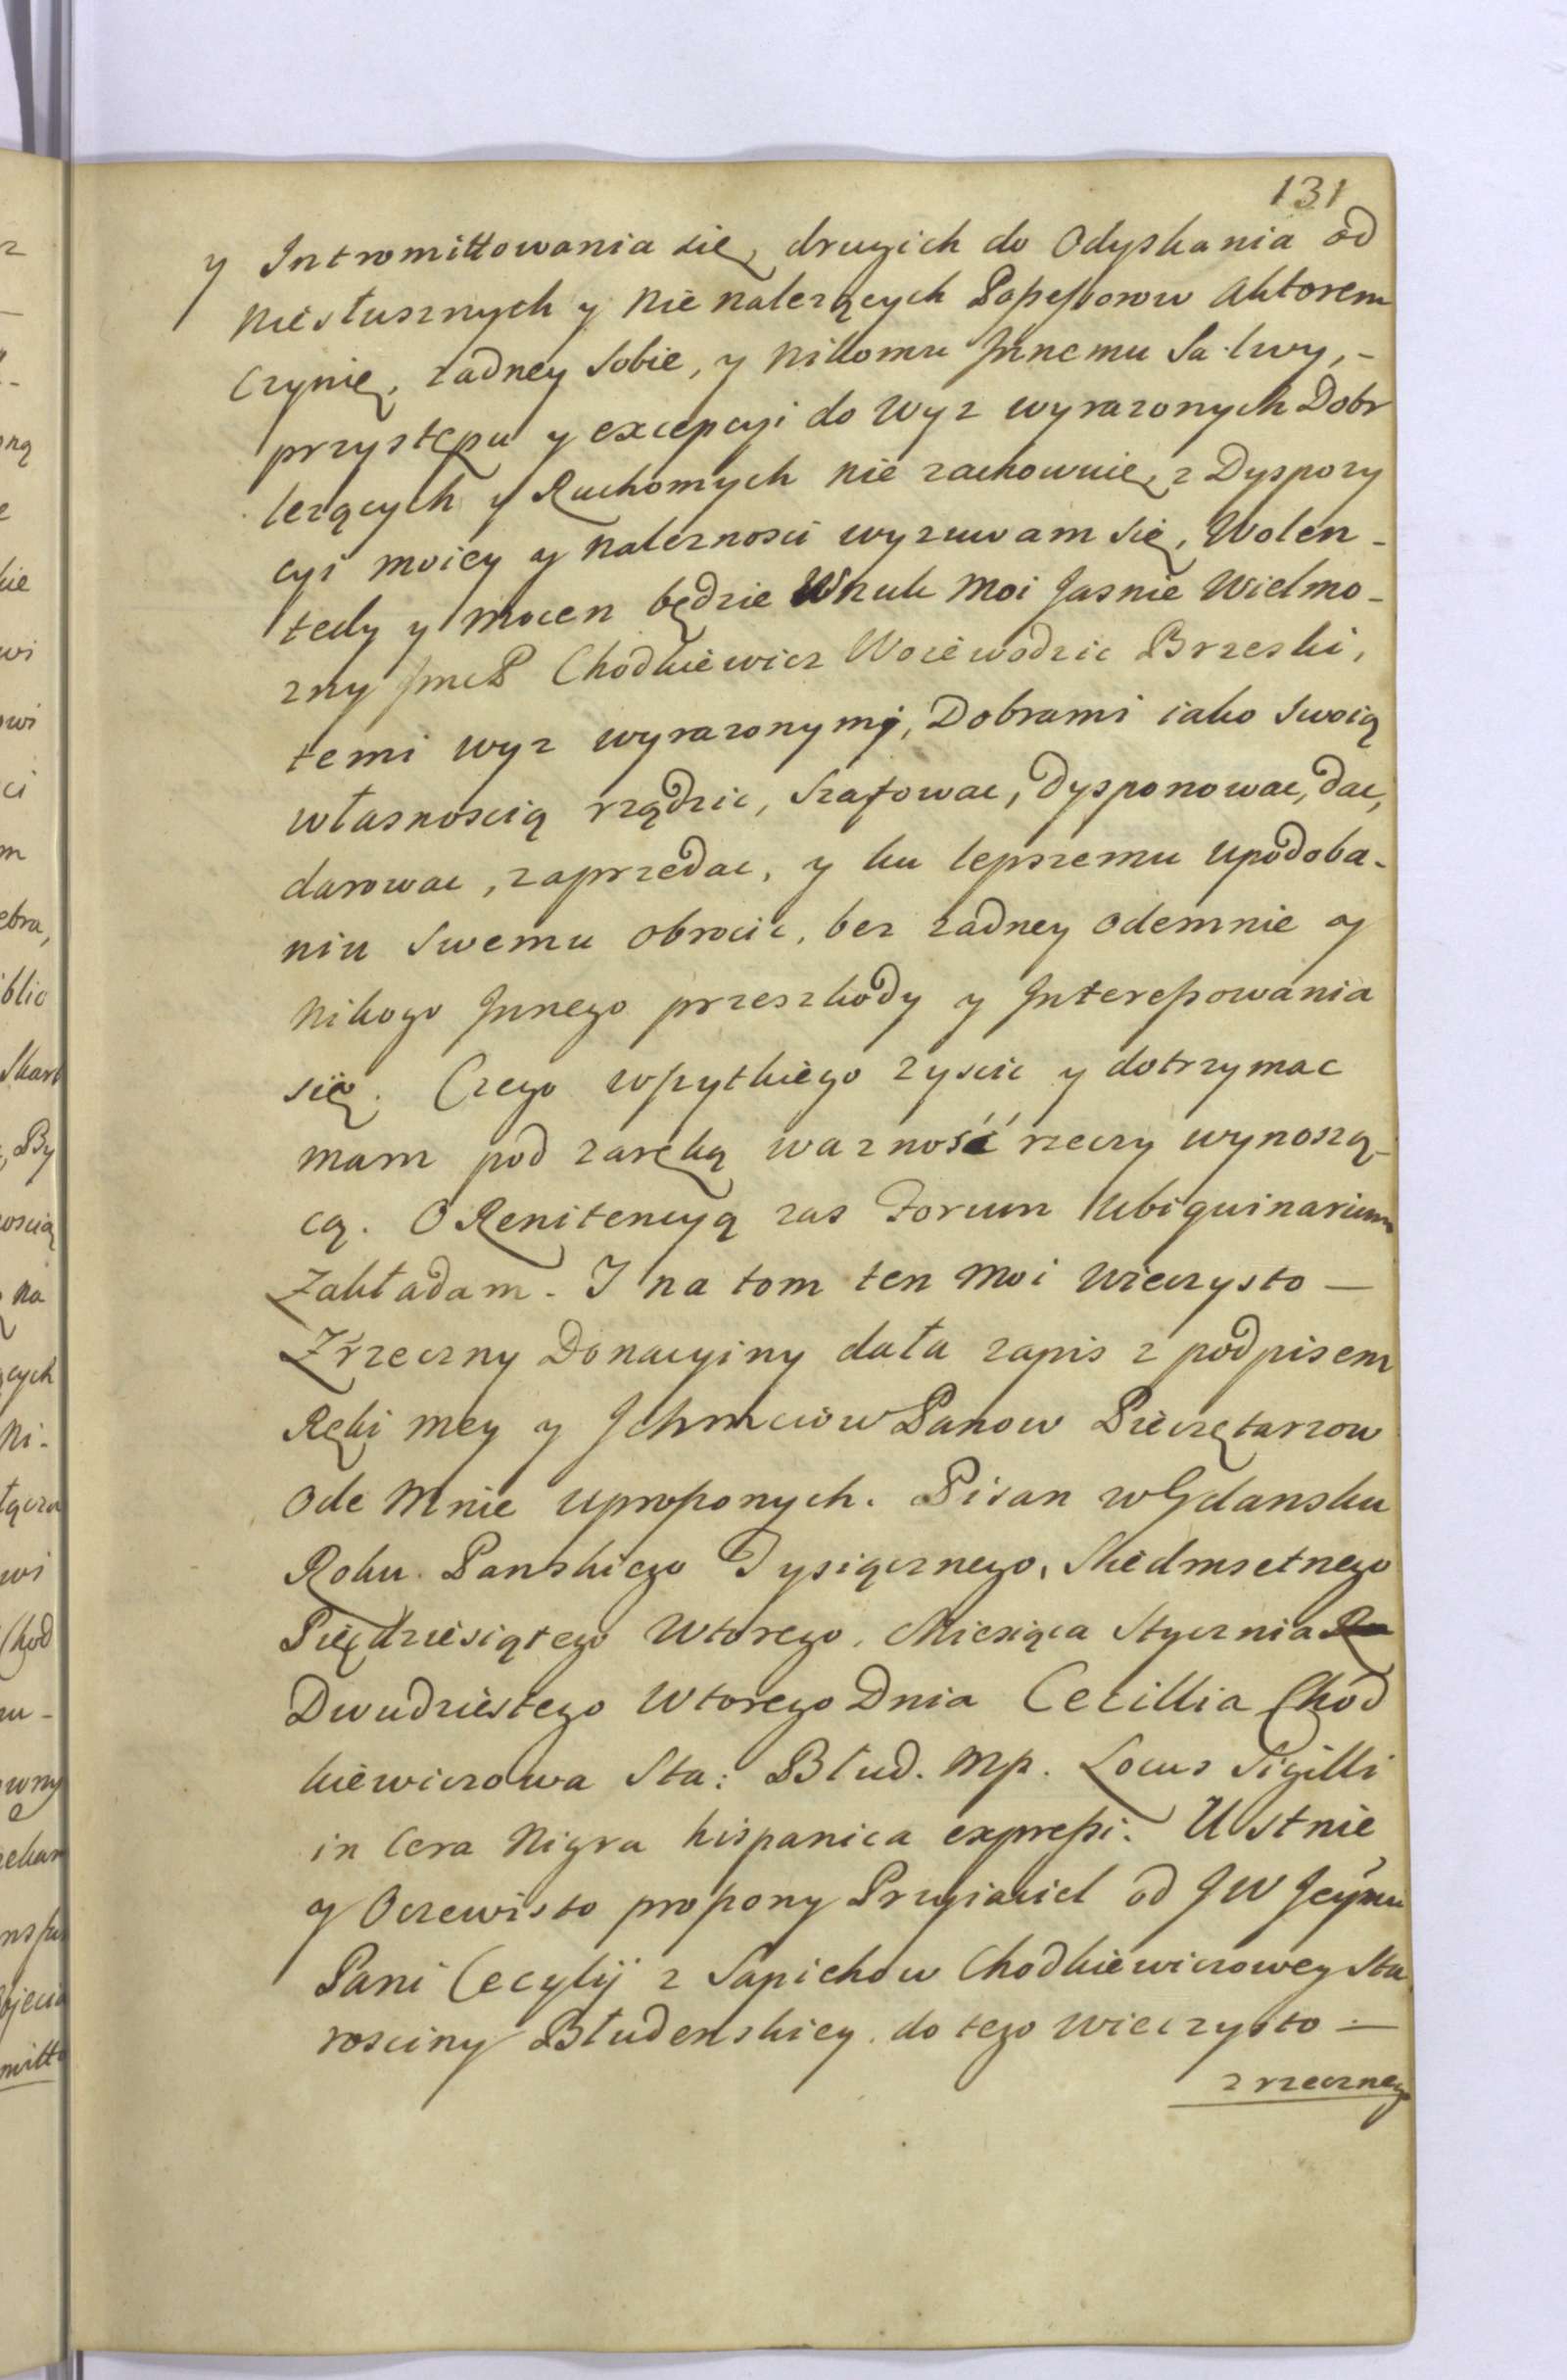 131
y Intromittowania się, drugich do Odyskania od
niesłusznych y nie nalezących Possessorow Aktorem
Czynię, zadney sobie, y nikomu Jnnemu Salwy,-
przystępu y excepcyi do wyz wyrazonych Dobr
lezących y Ruchomych nie zachownię, z Dyspozy
cyi moiey y naleznosci wyzuwam się, Wolen-
tedy y mocen będzie Wnuk moi Jasnie Wielmo-
zny JmcP Chodkiewicz Woiewodzic Brzeski,
temi wyz wyrazonymi, Dobrami iako swoią
własnoscią rządzic, szafowac, dysponowac, dac,
darowac, zaprzedac, y ku lepszemu upodoba-
niu swemu obrocic, bez zadney odemnie y
nikogo Jnnego przeszkody y Jnteressowania
się. Czego wszytkiego zyscic y dotrzymac
mam pod zaręką wazność rzeczy wynoszą-
cą. O Renitencyą zas Forum Ubiquinarium
Zakładam. I na tom ten moi wieczysto —
Zrzeczny Donacyiny dała zapis z podpisem
Ręki mey y Jchmciow Panow Pieczętarzow
Ode Mnie uproszonych. Pisan w Gdansku
Roku Panskiego Tysiącznego, Siedmsetnego
Pięcdziesiątego Wtorego, Miesiąca Stycznia
Dwudziestego Wtorego Dnia Cecillia Chod
kiewiczowa Sta: Błud. mp. Locus Sigilli
in Cera Nigra hispanica expressi. Ustnie
y Oczewisto proszony Przyiaciel od JW Jeymci
Pani Cecylij z Sapiehow Chodkiewiczowey Sta
rosciny Błudenskiey do tego wieczysto —
zrzecznego